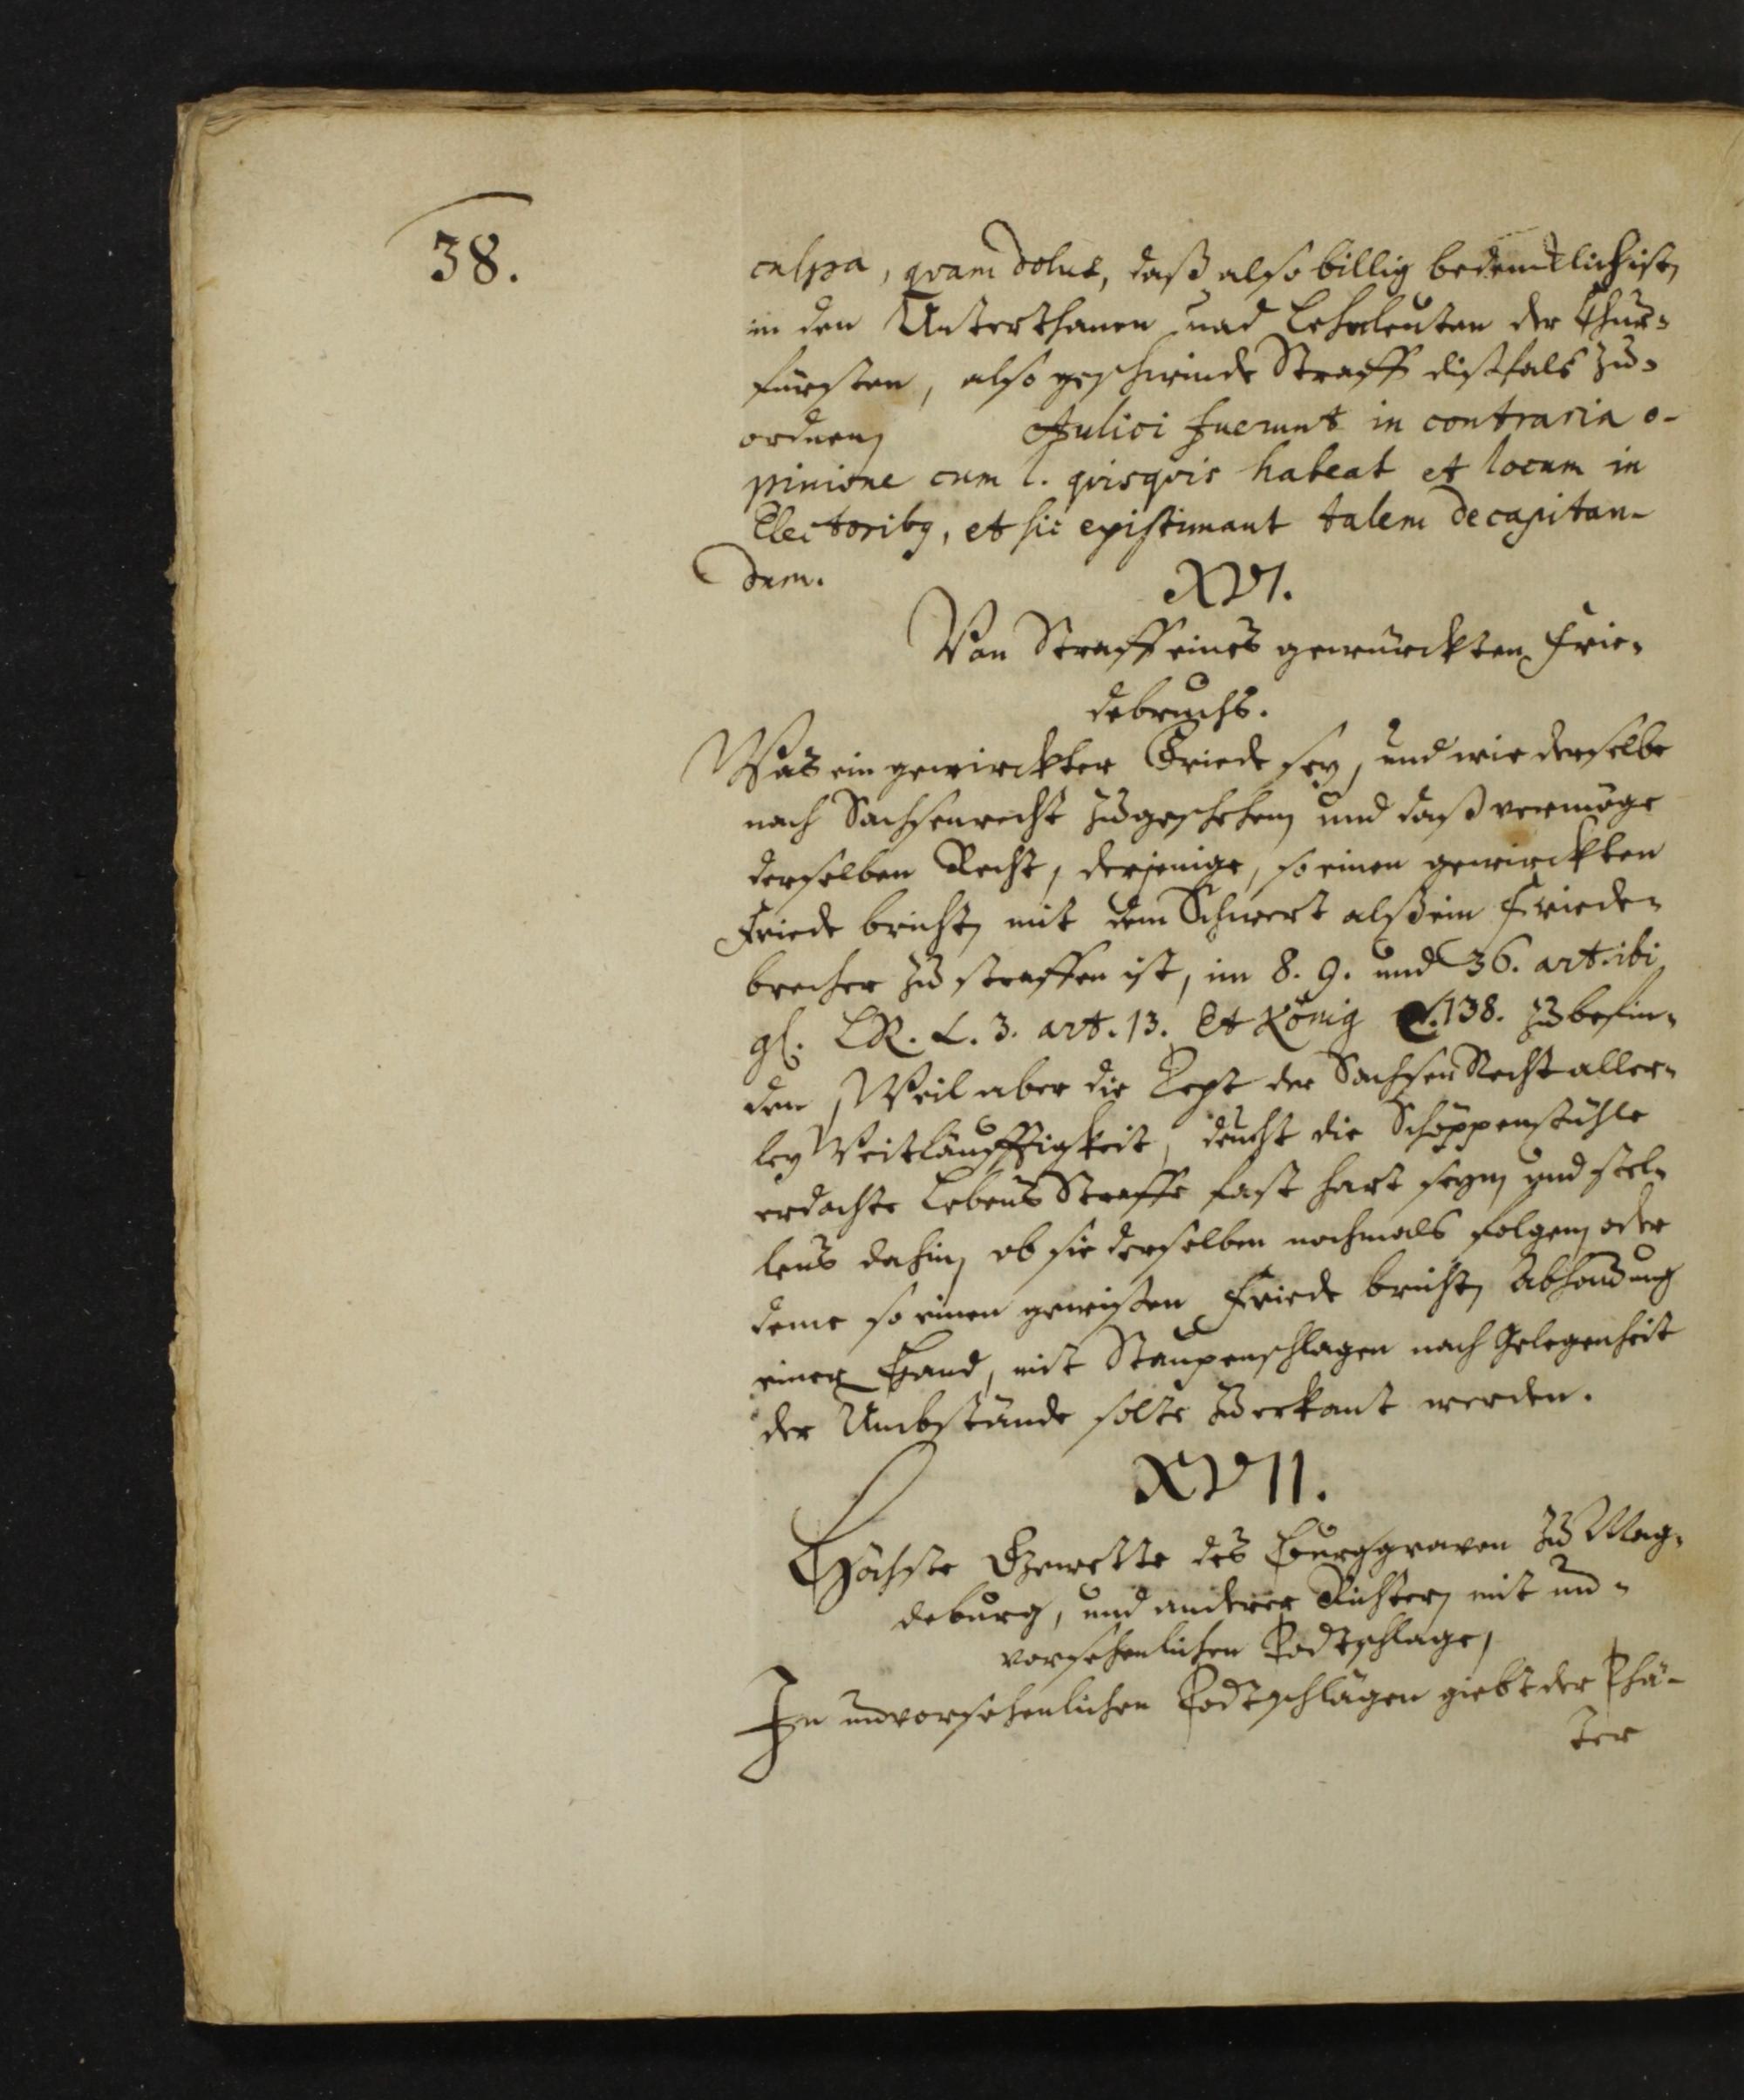 38.
culpa, qvam dolus, daß also billig bedencklich ist,
in den Unterthanen und Lehnleuten der Chur=
fürsten, also geschwinde Straff disfals zu=
ordnen, Aulici fuerunt in contraria o-
pinione cum l. qvisqvis habeat et locum in
Electoribq, et sic existimant talem decapitan-
dum.
XVI.
Von Straff eines gewürckten Frie=
debruchs.
Was ein gewirckter Friede sey, und wie derselbe
nach Sachsenrecht zugeschehen, und daß vermöge
derselben Recht, derjenige, so einen gewirckten
Friede bricht, mit dem Schwert alß ein Frieden=
brecher zu straffen ist, im 8. 9. und 36. art. ibi
gl. LR. L. 3. art. 13. Et König 138. zu befin=
den, Weil aber die Text der Sachsen Recht aller=
ley Weitläufftigkeit, deucht die Schöppenstühle
erdachte Lebens Straffe fast hart seyn, und stel=
lens dahin, ob sie derselben nochmals folgen, oder
deme so einen gewissen Friede bricht, Abhauung
einer Hand, mit Staupenschlagen nach Gelegenheit
der Umbstände solte zuerkant werden.
XVII.
Höchste Gewette des Burggraven zu Mag=
deburg, und anderer Richter, mit un=
vorsehenlichen Todtschlage,
In unvorsehenlichen Todtschlägen giebt der Thä-
ter